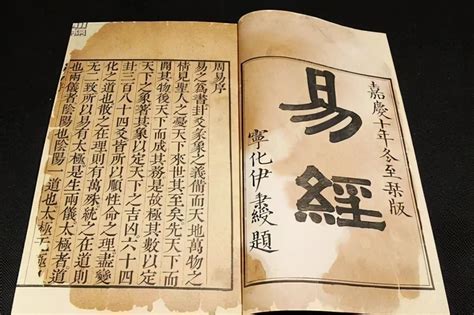 嘉慶十年 冬至栞版
易經
寧化伊秉綬題
周易序
易之爲書卦爻彖象之義備而天地萬物之
情見聖人之憂天下來世其至矣先天下而
開其物後天下而成其務是故極其數以定
天下之象著其象以定天下之吉凶六十四
卦三百八十四爻皆所以順性命之理盡變
化之道也散之在理則有萬殊統之在道則
无二致所以易有太極是生兩儀太極者道
也兩儀者陰陽也陰陽一道也太極无極